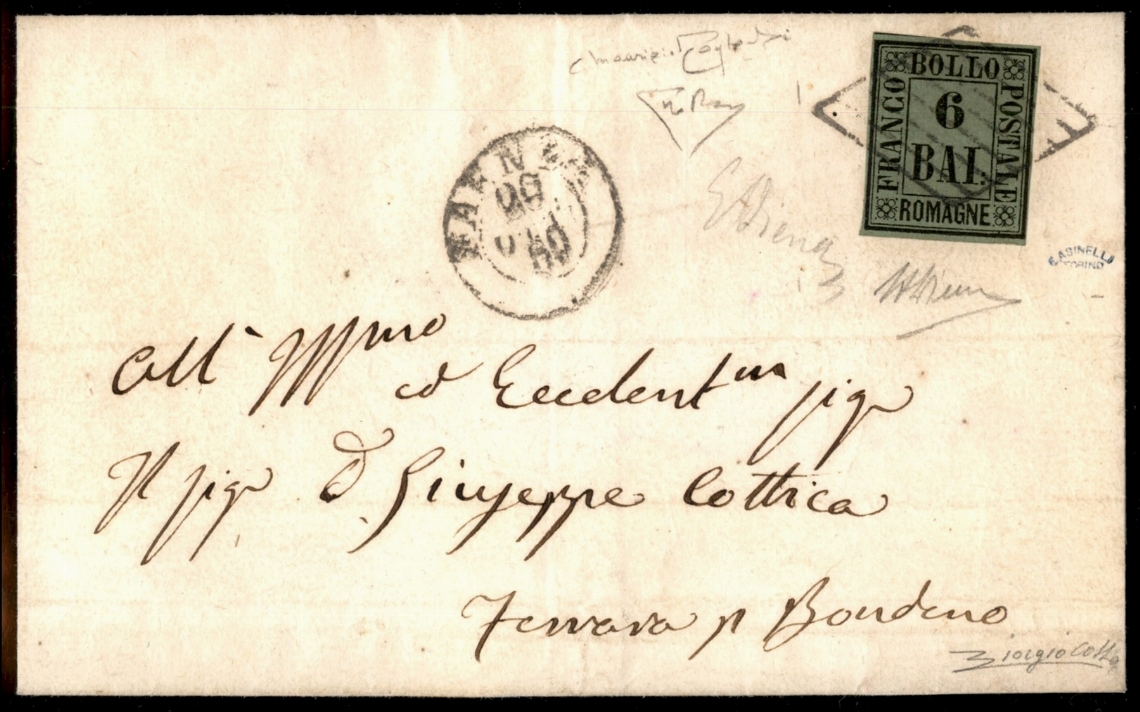 BOLLO
FRANCO
6
BAI.
POSTALE
ROMAGNE
FAENZA
60
E. Diena
ASINELLI
TORINO
All' Illmo
ed Eccellentmo Sigr
Il Sigr D. Giuseppe Cottica
Ferrara p Bondeno
Giorgio Colla